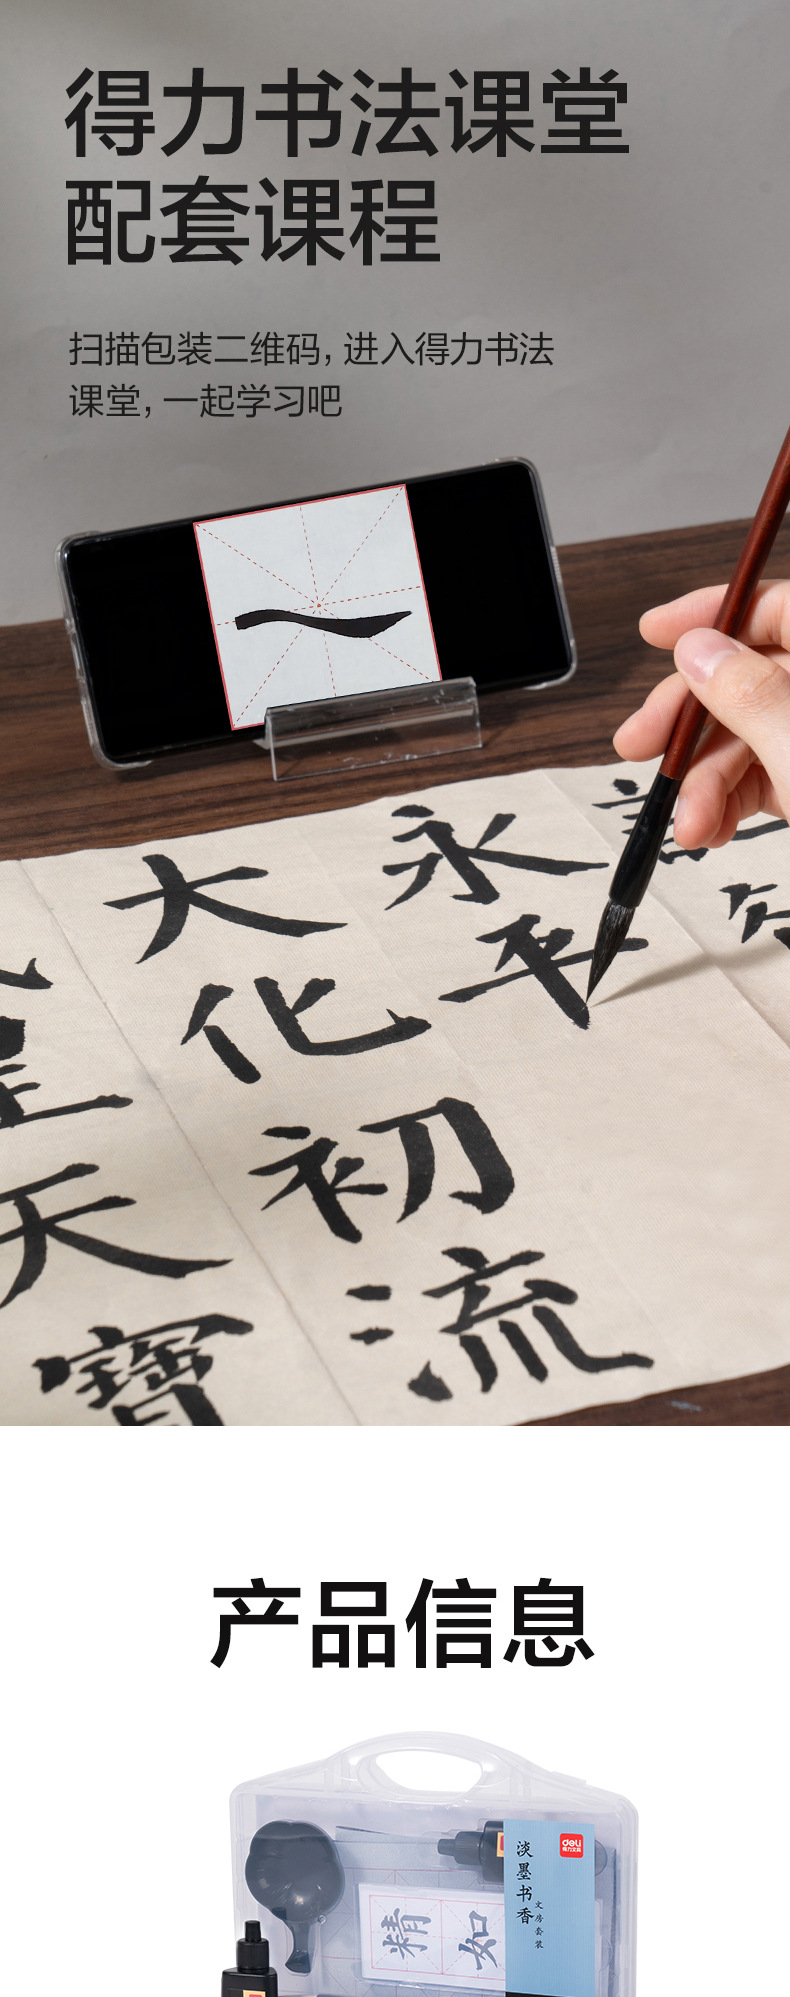 得力书法课堂
配套课程
扫描包装二维码, 进入得力书法
课堂, 一起学习吧
一
永平
大化初流
天寶
产品信息
deli
得力文具
淡墨书香
文房套装
精如